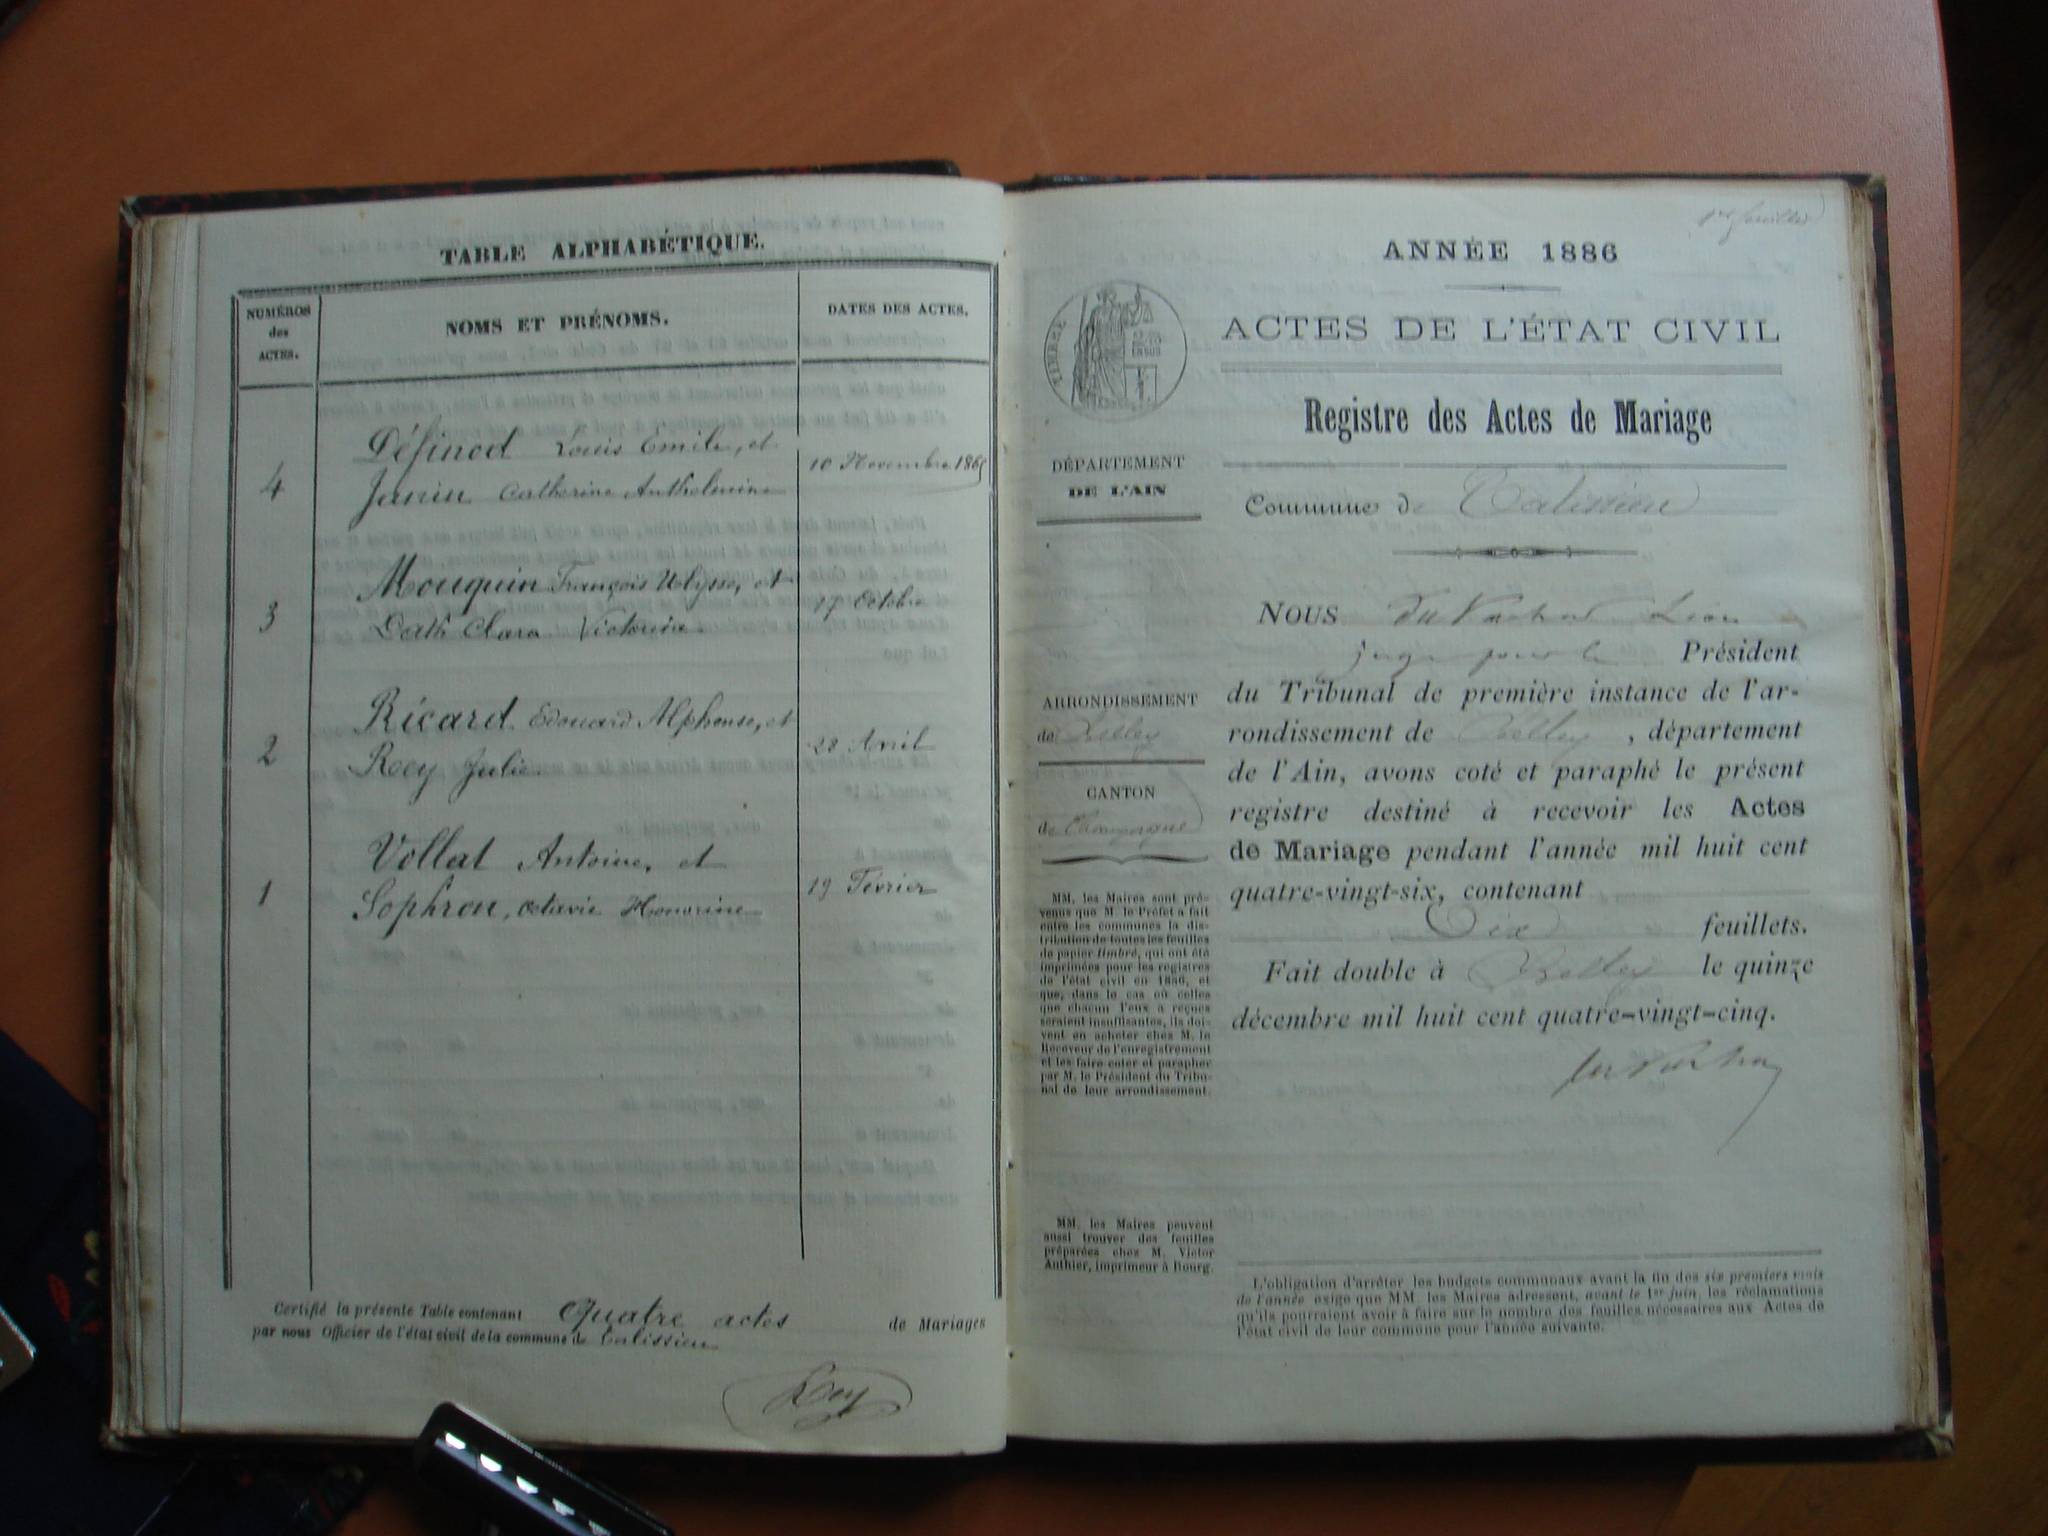 TABLE ALPHABÉTIQUE.
NUMÉROS
des
ACTES.
NOMS ET PRÉNOMS.
DATES DES ACTES.
4
Définod Louis Emile, et
Janin Catherine Anthelmine
10 Novembre
3
Mouquin François Ulysse, et
Clara Victorine
17 Octobre
2
Ricard Edouard Alphonse, et
Rey Julie
28 Avril
1
Vollat Antoine, et
Sophron, Octavie Honorine
19 Février
Certifié la présente Table contenant Quatre actes de Mariages
par nous Officier de l'état civil de la commune de Talissieu
Rey
1er feuillet
ANNÉE 1886
TIMBRE
ACTES DE L'ÉTAT CIVIL
Registre des Actes de Mariage
DÉPARTEMENT
DE L'AIN
Commune de Talissieu
ARRONDISSEMENT
de Belley
CANTON
de Champagne
MM. les Maires sont pré-
venus que M. le Préfet a fait
entre les communes la dis-
tribution de toutes les feuilles
de papier timbré, qui ont été
imprimées pour les registres
de l'état civil en 1886, et
que, dans le cas où celles
que chacun d'eux a reçues
seraient insuffisantes, ils doi-
vent en acheter chez M. le
Receveur de l'enregistrement
et les faire coter et parapher
par M. le Président du Tribu-
nal de leur arrondissement.
MM. les Maires peuvent
aussi trouver des feuilles
préparées chez M. Victor
Authier, imprimeur à Bourg.
NOUS
juge pour le Président
du Tribunal de première instance de l'ar-
rondissement de Belley, département
de l'Ain, avons coté et paraphé le présent
registre destiné à recevoir les Actes
de Mariage pendant l'année mil huit cent
quatre-vingt-six, contenant
Dix feuillets.
Fait double à Belley le quinze
décembre mil huit cent quatre-vingt-cinq.
L'obligation d'arrêter les budgets communaux avant la fin des six premiers mois
de l'année exige que MM. les Maires adressent, avant le 1er juin, les réclamations
qu'ils pourraient avoir à faire sur le nombre des feuilles nécessaires aux Actes de
l'état civil de leur commune pour l'année suivante.